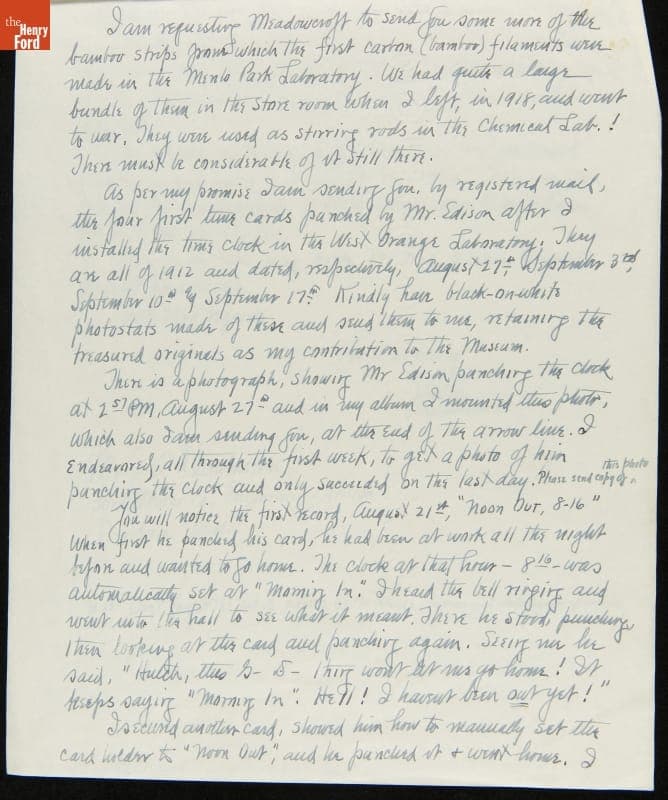 the
Henry
Ford
I am requesting Meadowcroft to send you some more of the
bamboo strips from which the first carbon (bamboo) filaments were
made in the Menlo Park Laboratory. We had quite a large
bundle of them in the store room when I left, in 1918, and went
to war. They were used as stirring rods in the Chemical Lab.!
There must be considerable of it still there.
As per my promise I am sending you, by registered mail,
the four first time cards punched by Mr. Edison after I
installed the time clock in the West Orange Laboratory. They
are all of 1912 and dated, respectively, August 27th September 3rd,
September 10th & September 17th. Kindly have black-on-white
photostats made of these and send them to me, retaining the
treasured originals as my contribution to the Museum.
There is a photograph, showing Mr Edison punching the clock
at 2 57 PM, August 27th and in my album I mounted this photo,
which also I am sending you, at the end of the arrow line. I
endeavored, all through the first week, to get a photo of him
punching the clock and only succeeded on the last day. Please send copy of this photo.
You will notice the first record, August 21st, "Noon Out, 8-16"
When first he punched his card, he had been at work all the night
before and wanted to go home. The clock at that hour - 8 16 - was
automatically set at "Morning In". I heard the bell ringing and
went into the hall to see what it meant. There he stood, punching
then looking at the card and punching again. Seeing me he
said, "Hutch, this G- D- thing wont let me go home! It
keeps saying "Morning In". Hell! I havent been out yet!"
I secured another card, showed him how to manually set the
card holder to "Noon Out", and he punched it & went home. I